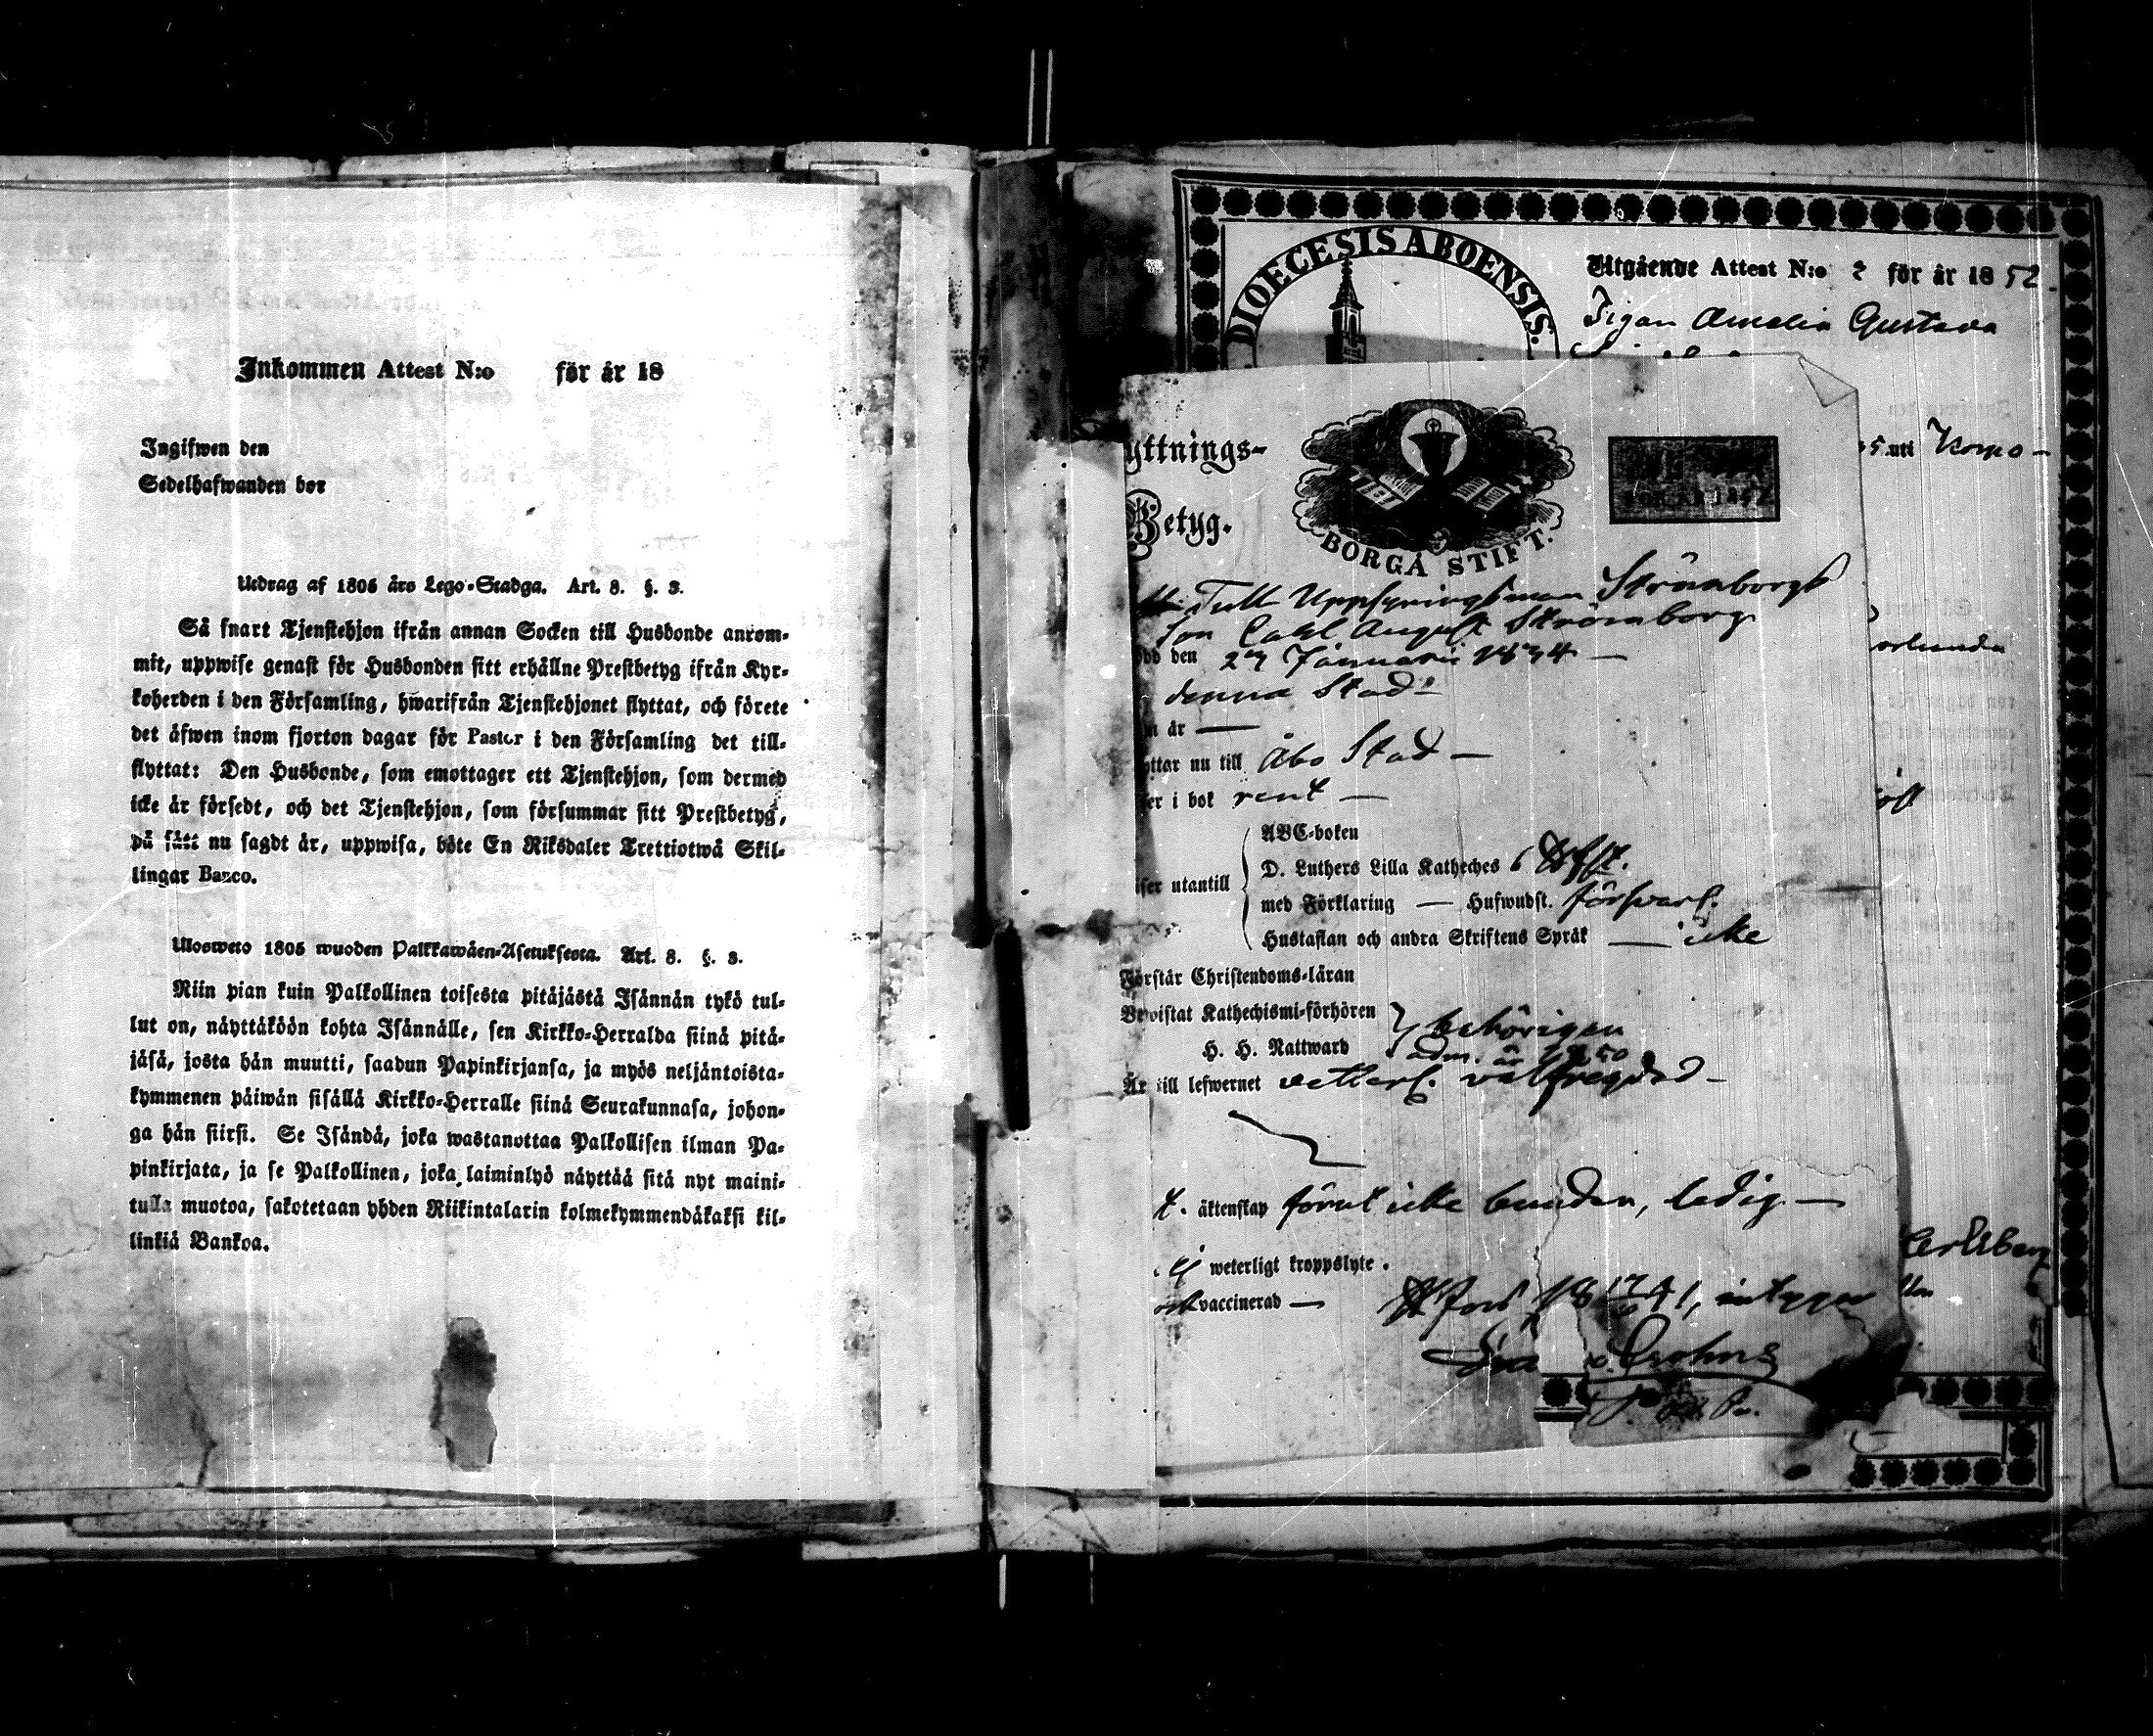 Inkommen Attest N:o för år 18
Ingifwen den
Sedelhafwanden bor
Utdrag af 1805 års Lego-Stadga. Art. 8. §. 3.
Så snart Tjenstehjon ifrån annan Socken till Husbonde ankom-
mit, uppwise genast för Husbonden sitt erhållne Prestbetyg ifrån Kyr-
koherden i den Församling, hwarifrån Tjenstehjonet flyttat, och förete
det äfwen inom fjorton dagar för Pastor i den Församling det till-
flyttat: Den Husbonde, som emottager ett Tjenstehjon, som dermed
icke är försedt, och det Tjenstehjon, som försummar sitt Prestbetyg,
på sätt nu sagdt är, uppwisa, böte En Riksdaler Trettiotwå Skil-
lingar Banco.
Ulosweto 1805 wuoden Palkkawäen-Asetuksesta. Art. 8. §. 3.
Niin pian kuin Palkollinen toisesta pitäjästä Isännän tykö tul-
lut on, näyttäköön kohta Isännälle, sen Kirkko-Herralda siinä pitä-
jäsä, josta hän muutti, saadun Papinkirjansa, ja myös neljäntoista-
kymmenen päiwän sisällä Kirkko-Herralle siinä Seurakunnasa, johon-
ga hän siirsi. Se Isändä, joka wastanottaa Palkollisen ilman Pa-
pinkirjata, ja se Palkollinen, joka laiminlyö näyttää sitä nyt maini-
tulla muotoa, sakotetaan yhden Riikintalarin kolmekymmendäkaksi kil-
linkiä Bankoa.
DIOECESIS ABOENSIS.
Utgående Attest N:o 2 för år 1852.
Pigan Amalia Gustava
uti Korpo-
yttnings-
Betyg.
BORGÅ STIFT.
Tull Uppsyningsman Strömborgs
son Carl August Strömborg
den 27 Januarii 1834 —
denna Stad —
är —
ttar nu till Åbo Stad —
er i bok rent —
ser utantill
ABC-boken
D. Luthers Lilla Katheches 6 Hfst.
med Förklaring — Hufwudst. förswarl.
Hustaflan och andra Skriftens Språk — icke
Förstår Christendoms-läran
Bewistat Kathechismi-förhören
H. H. Nattward
behörigen
adm. år 1850
Är till lefwernet vetterl. välfregdad —
äktenskap förut icke bunden, ledig —
weterligt kroppslyte.
vaccinerad —
intygar